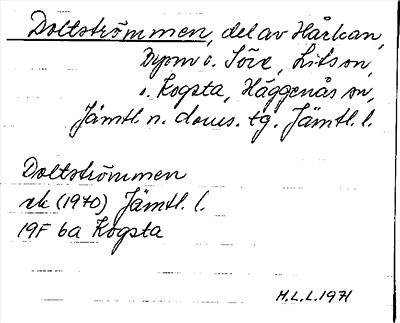 Doltströmmen, del av Hårkan,
Bynn o. Söre, Lits sn,
o. Kogsta, Häggenås sn,
Jämtl. n. doms. tg. Jämtl. l.
Doltströmmen
rk (1970) Jämtl. l.
19F 6a Kogsta
H.L.L. 1971